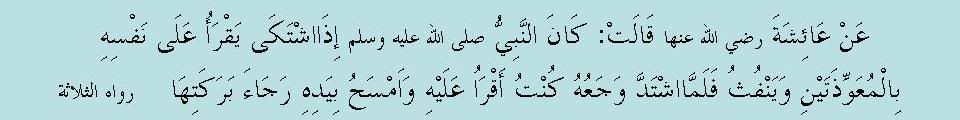 عَنْ عَائِشَةَ رضي الله عنها قَالَتْ: كَانَ النَّبِيُّ صلى الله عليه وسلم إِذَااشْتَكَى يَقْرَأُ عَلَى نَفْسِهِ
بِالْمُعَوِّذَتَيْنِ وَيَنْفُثُ فَلَمَّااشْتَدَّ وَجَعُهُ كُنْتُ أَقْرَاُ عَلَيْهِ وَاَمْسَحُ بِيَدِهِ رَجَاءَ بَرَكَتِهَا رواه الثلاثة